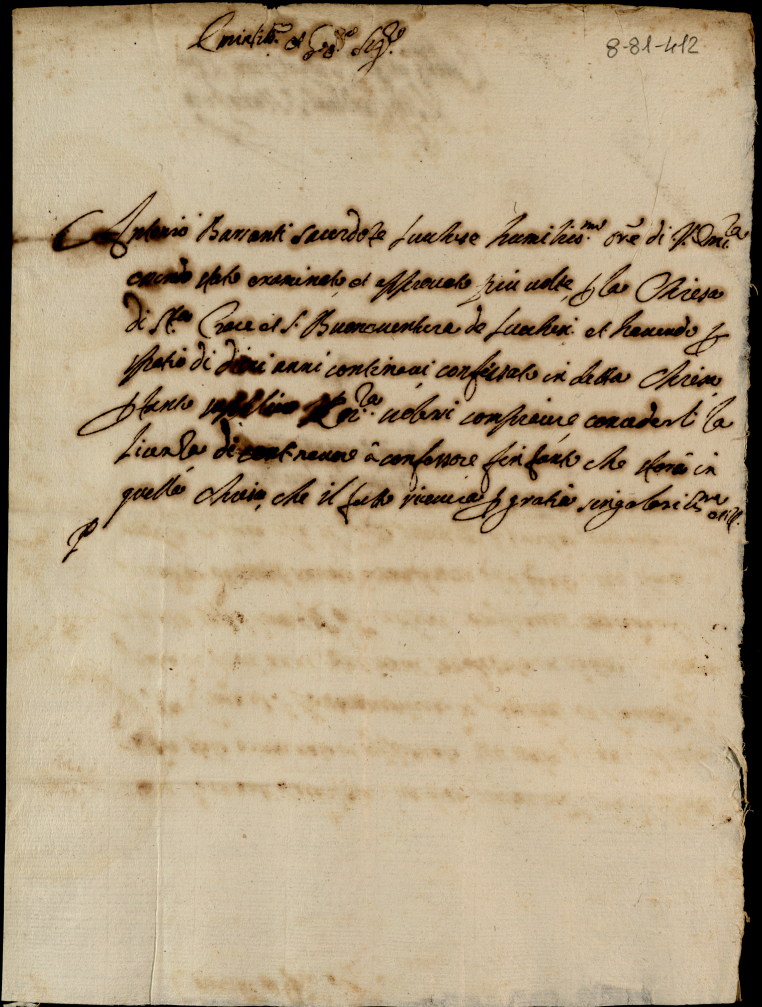 Eminent.mo et R.mo Sig.re
8-81-412
Antonio Barsanti sacerdote lucchese humiliss.mo ore di V. Em.za
essendo stato examinato et approvato piu volte p la Chiesa
di S.ta Croce et S. Buonaventura de lucchesi et havendo p
spatio di dieci anni continovi confessato in detta Chiesa
p tanto supplica V. Em.za volersi compiacere concederli la
licenza di continovare à confessore fin tanto che starà in
quella chiesa, che il tutto ricevera p gratia singolarissma